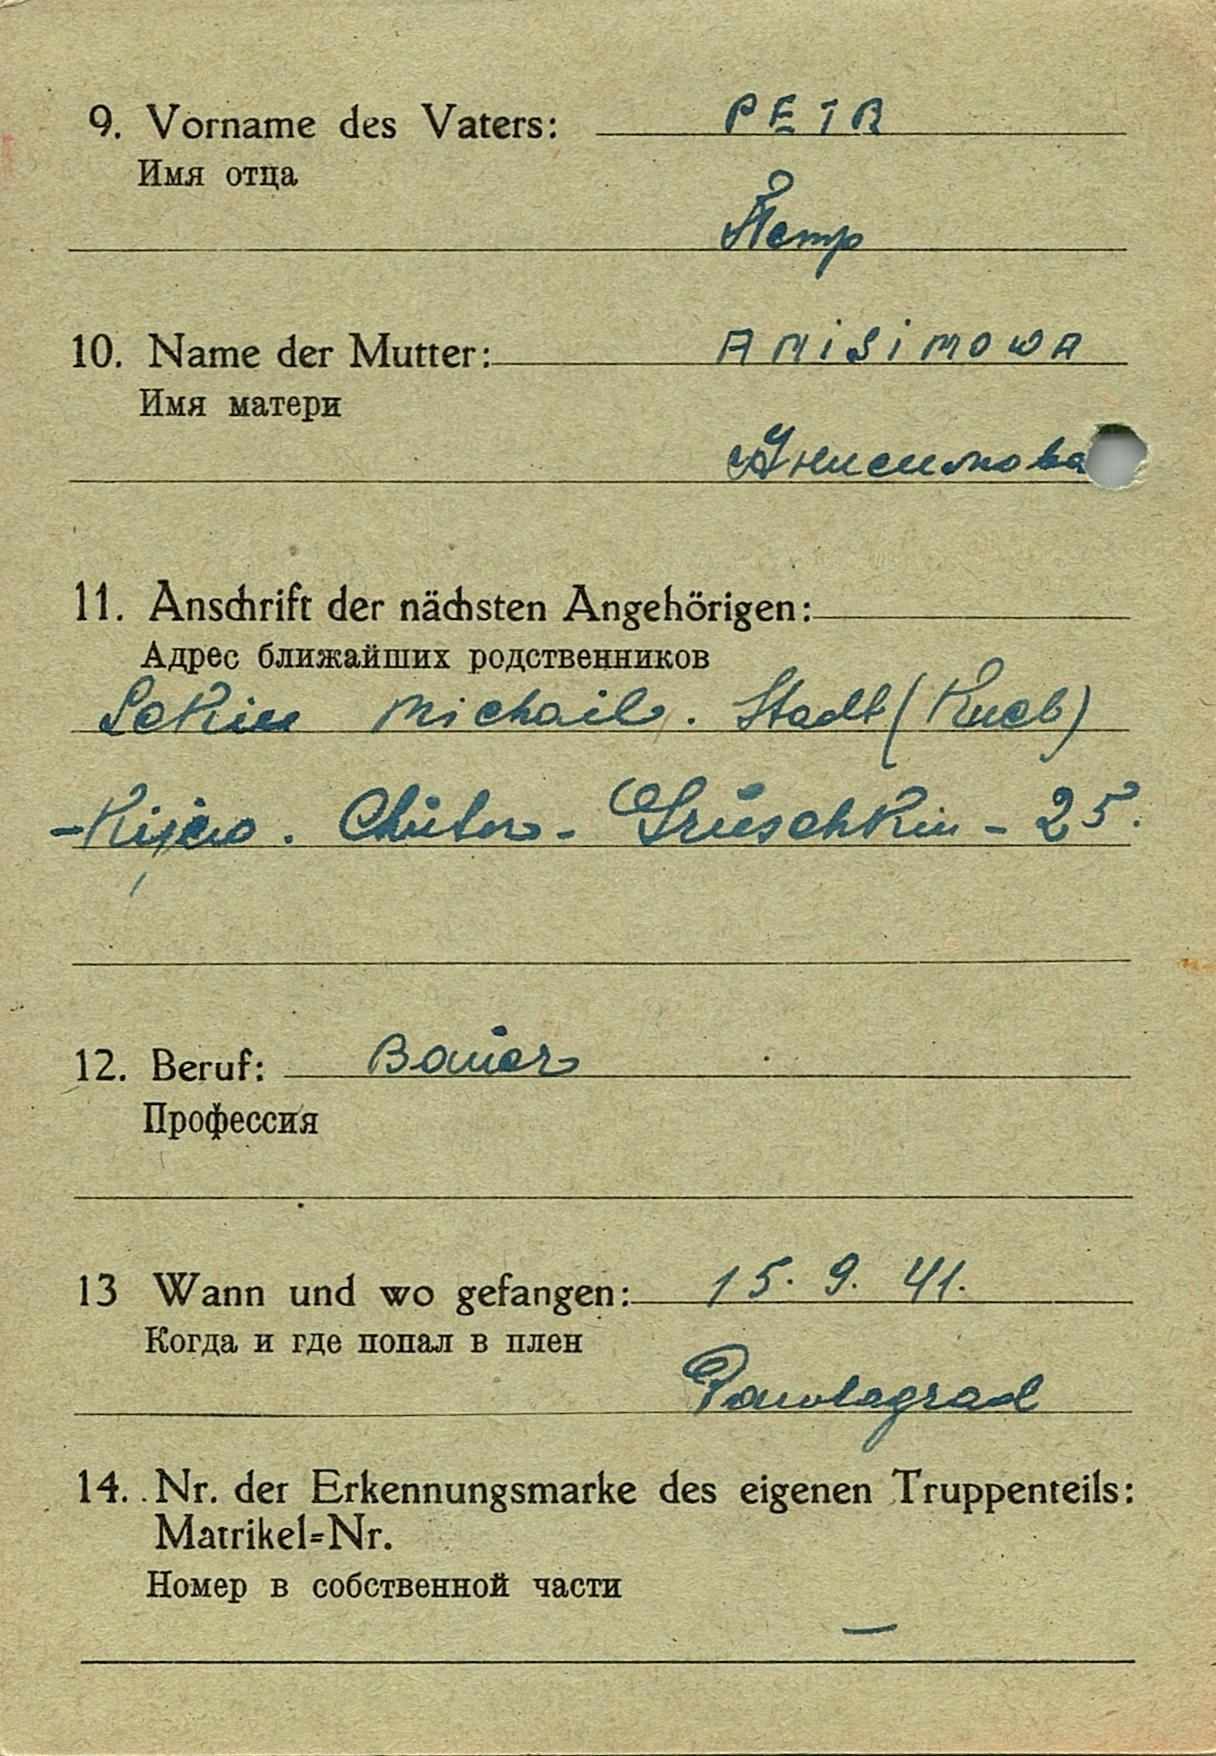 9. Vorname des Vaters: PETR
Имя отца
Петр
10. Name der Mutter: ANISIMOWA
Имя матери
Анисимова
11. Anschrift der nächsten Angehörigen:
Адрес ближайших родственников
Michail. Stadt (Киев)
-Kijew. Chutor- Gruschkin - 25.
12. Beruf: Bauer
Профессия
13 Wann und wo gefangen: 15. 9. 41.
Когда и где попал в плен
Pawlagrad
14. Nr. der Erkennungsmarke des eigenen Truppenteils:
Matrikel=Nr.
Номер в собственной части
—